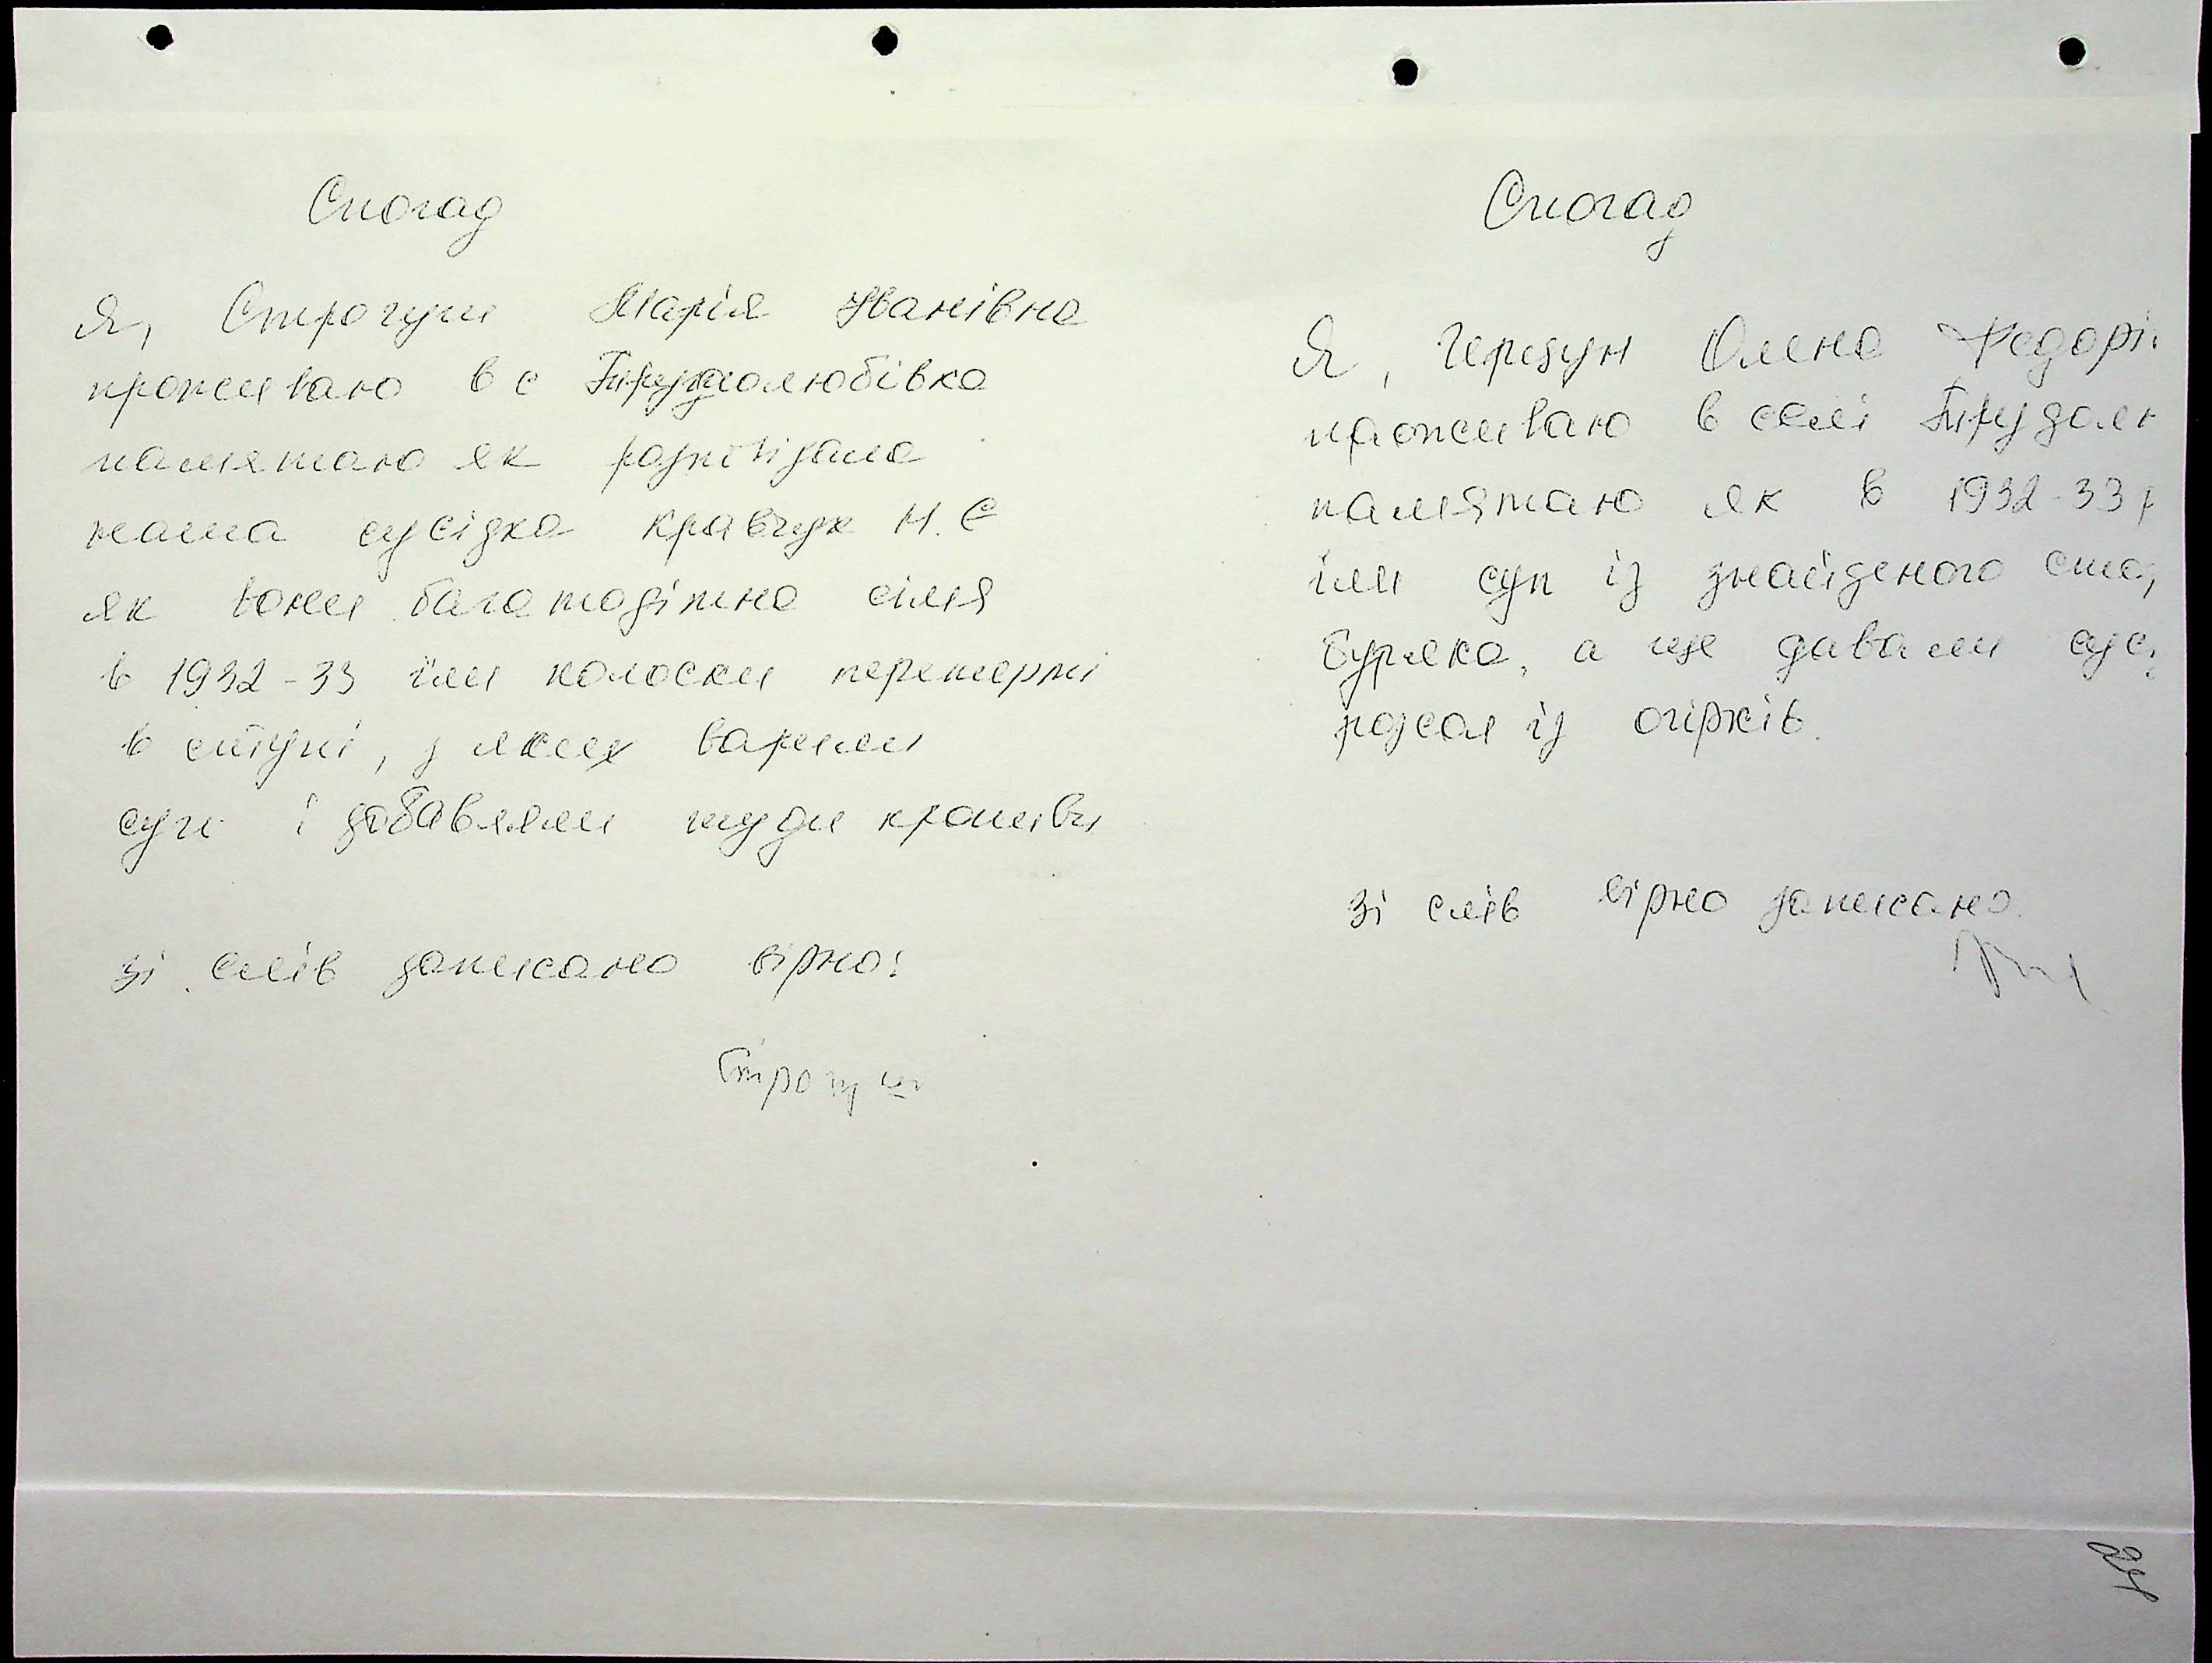 Спогад
Я, Строгуш Марія Іванівна
проживаю в с Трудолюбівка
памятаю як розповідала
наша сусідка Кравчук Н. Є
як вони багатодітна сімя
в 1932-33 їли колоски перетерті
в ступі, з яких варили
суп і добавляли туди кропиви
зі слів записано вірно:
Строгуш
Спогад
Я, Олена Федорі
проживаю в селі Трудолю
памятаю як в 1932-33 р
їли суп із знайденого
буряка, а ще давали сус
розсол із огірків.
зі слів вірно записано.
24